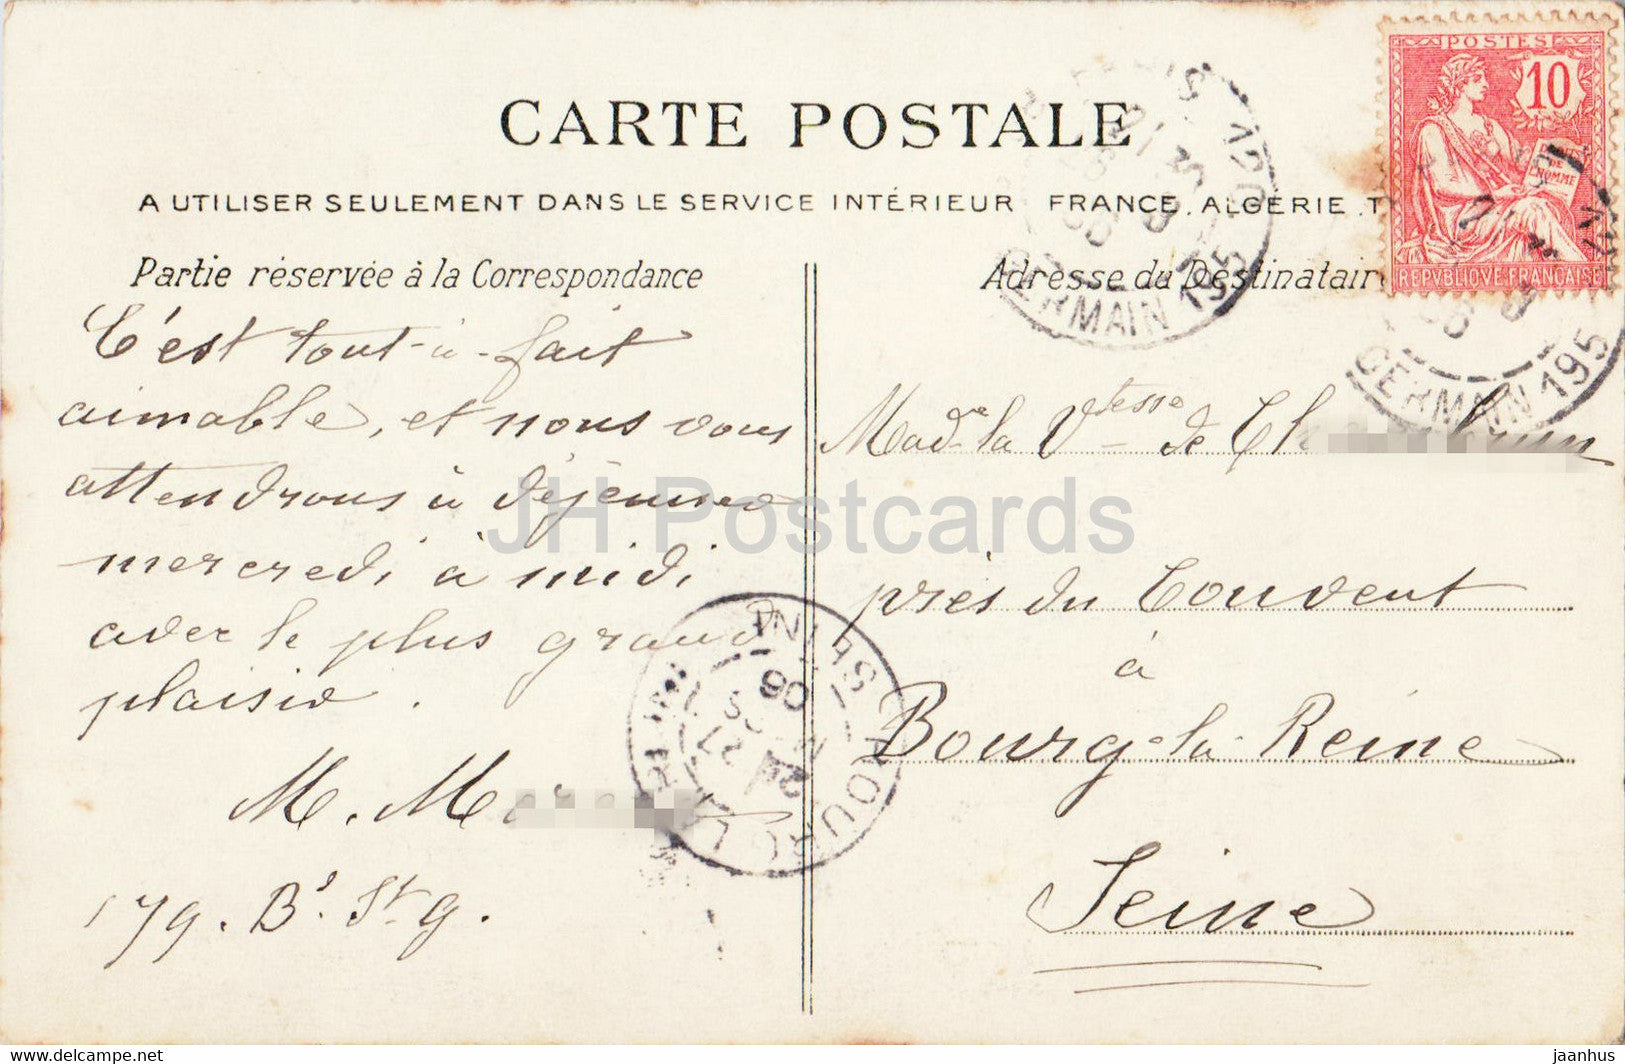 CARTE POSTALE
A UTILISER SEULEMENT DANS LE SERVICE INTÉRIEUR FRANCE. ALGÉRIE. T
Partie réservée à la Correspondance
C'est tout-à-fait
aimable, et nous vous
attendrons à déjeuner
mercredi à midi
avec le plus grand
plaisir.
M. M
179. Bd. St. G.
Adresse du Destinatair
Madme la Vtesse de
près du Couvent
à
Bourg-la-Reine
Seine
POSTES
10
DE
L'HOMME
REPVBLIQVE FRANÇAISE
PARIS 120
GERMAIN 195
GERMAIN 195
BOURG LA REINE
SEINE
06
JH Postcards
www.delcampe.net
jaanhus